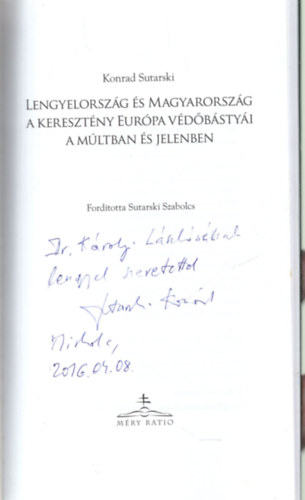 Konrad Sutarski
LENGYELORSZÁG ÉS MAGYARORSZÁG
A KERESZTÉNY EURÓPA VÉDŐBÁSTYÁI
A MÚLTBAN ÉS JELENBEN
Fordította Sutarski Szabolcs
Dr. Károly Lászlónénak
lengyel szeretettel
Sutarski Konrád
Miskolc,
2016.04.08.
MÉRY RATIO